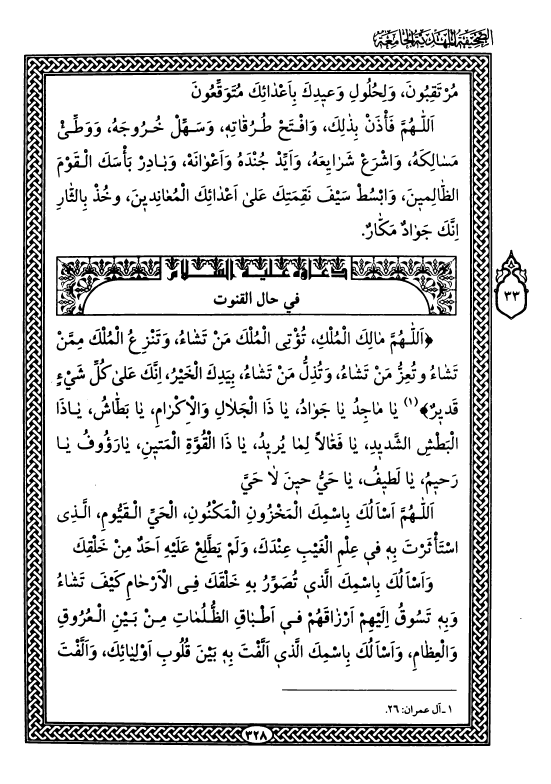 الصحيفة المهدية الجامعة
مُرْتَقِبُونَ، وَلِحُلُولِ وَعيدِكَ بِاَعْدٰائِكَ مُتَوَقِّعُونَ
اَللّٰهُمَّ فَأْذَنْ بِذٰلِكَ، وَافْتَحْ طُرُقٰاتِهِ، وَسَهِّلْ خُرُوجَهُ، وَوَطِّئْ
مَسٰالِكَهُ، وَاشْرَعْ شَرٰايِعَهُ، وَاَيِّدْ جُنْدَهُ وَاَعْوٰانَهُ، وَبٰادِرْ بَأْسَكَ الْقَوْمَ
الظّٰالِمينَ، وَابْسُطْ سَيْفَ نَقِمَتِكَ عَلىٰ اَعْدٰائِكَ الْمُعٰانِدينَ، وخُذْ بِالثّٰارِ
اِنَّكَ جَوٰادٌ مَكّٰارٌ.
دعاؤه عليه السلام
في حال القنوت
٣٣
﴿اَللّٰهُمَّ مٰالِكَ الْمُلْكِ، تُؤْتِى الْمُلْكَ مَنْ تَشٰاءُ، وَتَنْزِعُ الْمُلْكَ مِمَّنْ
تَشٰاءُ وتُعِزُّ مَنْ تَشٰاءُ، وَتُذِلُّ مَنْ تَشٰاءُ، بِيَدِكَ الْخَيْرُ، اِنَّكَ عَلىٰ كُلِّ شَيْءٍ
قَديرٌ﴾(١) يٰا مٰاجِدُ يٰا جَوٰادُ، يٰا ذَا الْجَلاٰلِ وَالْاِكْرٰامِ، يٰا بَطّٰاشُ، يٰاذَا
الْبَطْشِ الشَّديدِ، يٰا فَعّٰالاً لِمٰا يُريدُ، يٰا ذَا الْقُوَّةِ الْمَتينِ، يٰارَؤُوفُ يٰا
رَحيمُ، يٰا لَطيفُ، يٰا حَيُّ حينَ لاٰ حَيَّ
اَللّٰهُمَّ اَسْاَلُكَ بِاسْمِكَ الْمَخْزُونِ الْمَكْنُونِ، الْحَيِّ الْقَيُّومِ، الَّذِى
اسْتَأْثَرْتَ بِهِ في عِلْمِ الْغَيْبِ عِنْدَكَ، وَلَمْ يَطَّلِعْ عَلَيْهِ اَحَدٌ مِنْ خَلْقِكَ
وَاَسْاَلُكَ بِاسْمِكَ الَّذي تُصَوِّرُ بِهِ خَلْقَكَ فِى الْاَرْحٰامِ كَيْفَ تَشٰاءُ
وَبِهِ تَسُوقُ اِلَيْهِمْ اَرْزٰاقَهُمْ في اَطْبٰاقِ الظُّلُمٰاتِ مِنْ بَيْنِ الْعُرُوقِ
وَالْعِظٰامِ، وَاَسْاَلُكَ بِاسْمِكَ الَّذي اَلَّفْتَ بِهِ بَيْنَ قُلُوبِ اَوْلِيٰائِكَ، وَاَلَّفْتَ
١ ـ آل عمران: ٢٦.
٣٢٨